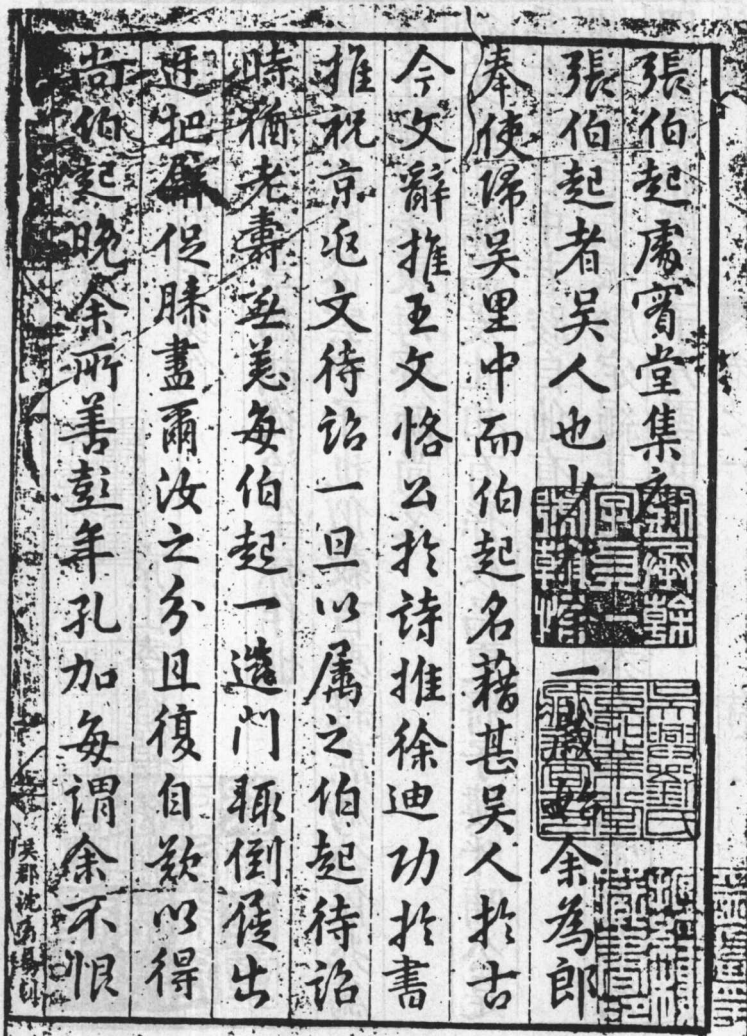 張伯起處實堂集序
張伯起者吳人也少一歲始余為郎
奉使歸吳里中而伯起名藉甚吳人於古
今文辭推王文恪公於詩推徐迪功於書
推祝京兆文待詔一旦以屬之伯起待詔
時猶老壽無恙每伯起一造門輒倒屣出
迓把臂促膝盡爾汝之分且復自歎以得
尚伯起晚余所善彭年孔加每謂余不恨
吳郡沈